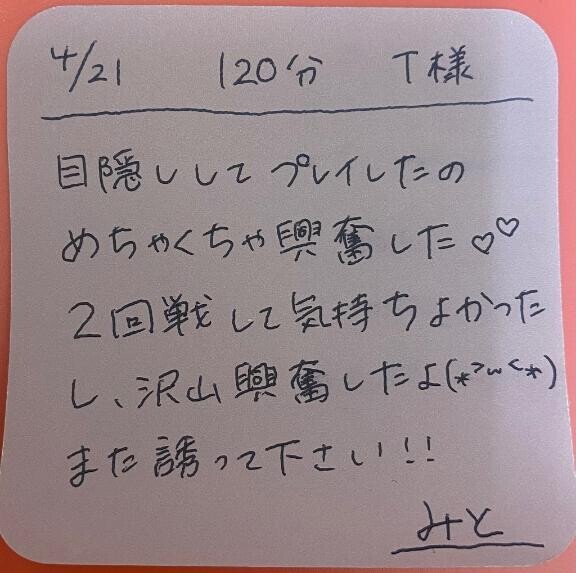 4/21 120分 T様
目隠ししてプレイしたの
めちゃくちゃ興奮した♡♡
2回戦して気持ちよかった
し、沢山興奮したよ(*>ω<*)
また誘って下さい!!
みと